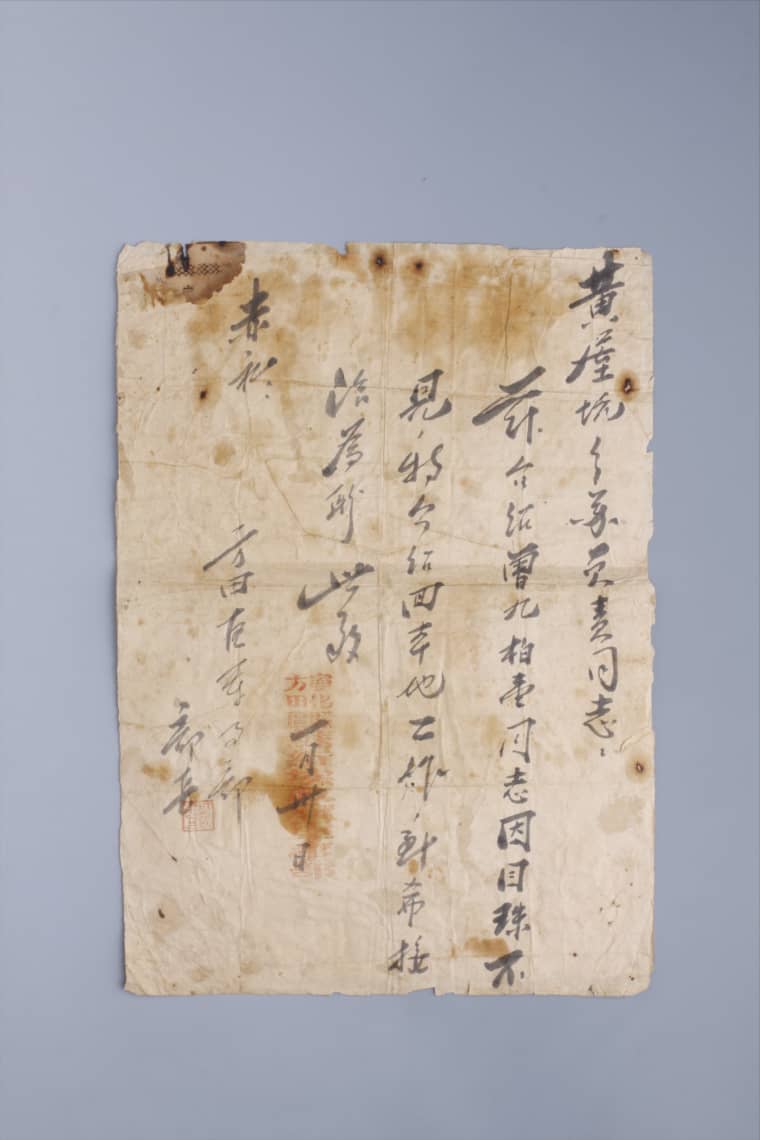 黄屋坑乡苏负责同志：
兹介绍曾九柏壹同志因目珠不
见，特介绍回本地工作，到希接
洽为盼 此致
赤礼
方田区军事部
部长
一月廿日